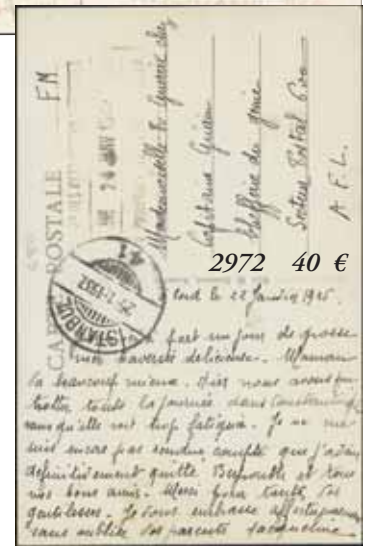 CARTE POSTALE
FM
Mademoiselle de chez
Capitaine
Chefferie du génie
Secteur Postal
A F L.
ISTANBUL
41
2972 40 €
bord le 22 Janvier
fort un jour de grosse
mer traversée délicieuse. Maman
va beaucoup mieux. Hier nous avons pu
trotter toute la journée dans
sans qu'elle soit trop fatiguée. Je ne me
suis encore pas rendue compte que j'avais
définitivement quitté Beyrouth et tous
nos bons amis. Merci pour toutes vos
gentillesses. Je vous embrasse affectueusement
sans oublier vos parents Jacqueline